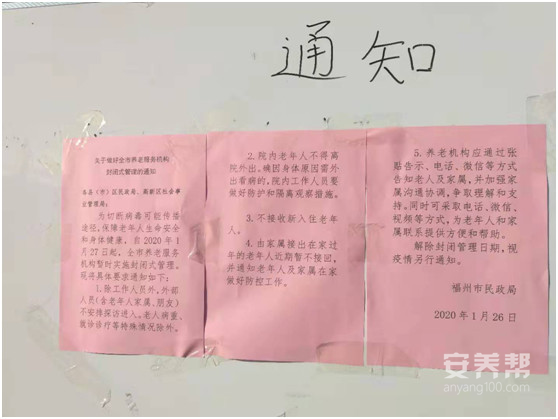 通知
关于做好全市养老服务机构
封闭式管理的通知
各县（市）区民政局、高新区社会事
业管理局:
为切断病毒可能传播
途径，保障老年人生命安全
和身体健康，自2020年1
月27日起，全市养老服务
机构暂时实施封闭式管理。
现将具体要求通知如下：
1.除工作人员外，外部
人员（含老年人家属、朋友）
不安排探访进入，老人病重、
就诊诊疗等特殊情况除外。
2.院内老年人不得离
院外出，确因身体原因需外
出看病的，院内工作人员要
做好防护和隔离观察措施。
3.不接收新入住老年
人。
4.由家属接出在家过
年的老年人近期暂不接回，
并通知老年人及家属在家
做好防控工作。
5.养老机构应通过张
贴告示、电话、微信等方式
告知老人及家属，并加强家
属沟通协调，争取理解和支
持。同时可采取电话、微信、
视频等方式，为老年人和家
属联系提供方便和帮助。
解除封闭管理日期，视
疫情另行通知。
福州市民政局
2020年1月26日
安养帮
anyang100.com